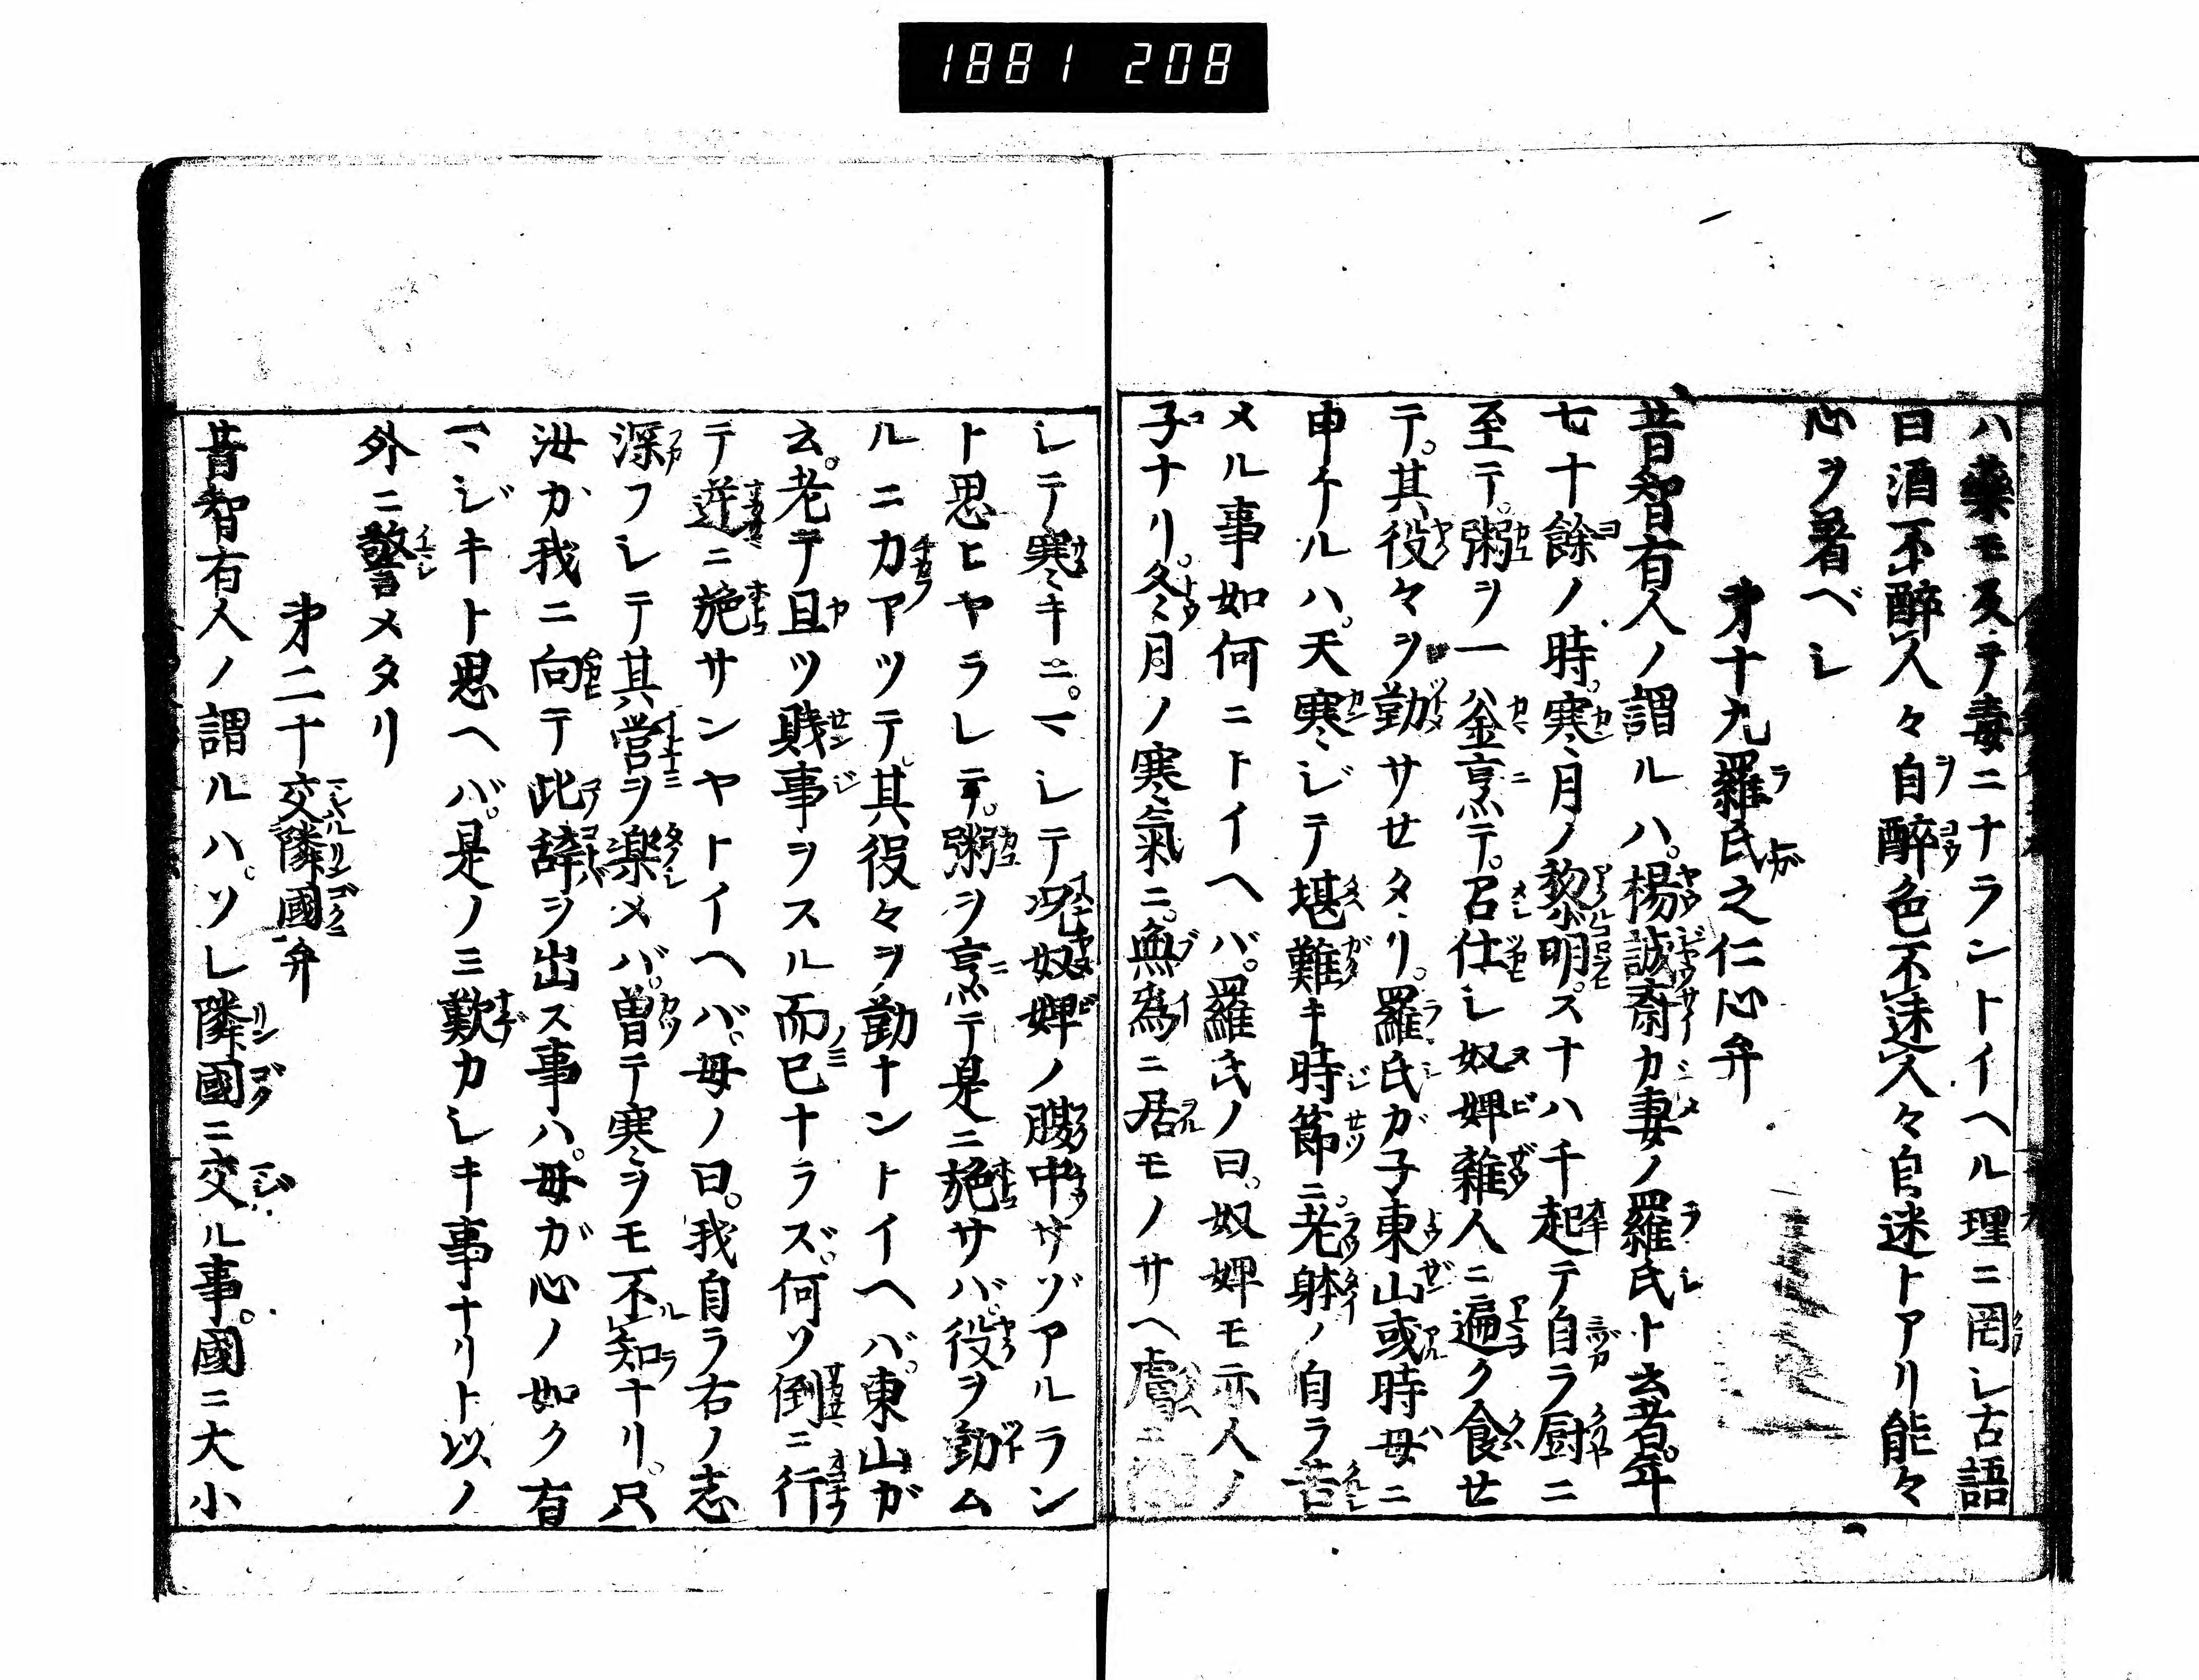 1881 208
ハ藥モ反テ毒ニナラントイヘル理ニ罔シ古語
曰酒不醉人々自醉色不迷人々自迷トアリ能々
心ヲ着ベシ
㐧十九羅氏之仁心弁
昔智有人ノ謂ルハ。楊誠斎カ妻ノ羅氏ト云者。年
七十餘ノ時。寒月ノ黎明。スナハチ起テ自ラ厨ニ
至テ。粥ヲ一釜烹テ。召仕シ奴婢雜人ニ遍ク食セ
テ。其役々ヲ勤サセタリ。羅氏ガ子東山或時母ニ
申ケルハ。天寒ジテ堪難キ時節ニ。老躰ノ自ラ苦
メル事如何ニトイヘバ。羅氏ノ曰。奴婢モ亦人ノ
子ナリ。冬月ノ寒氣ニ。無為ニ居モノサヘ膚
シテ寒キニ。マシテ况奴婢ノ膓中サゾアルラン
ト思ヒヤラレテ。粥ヲ烹テ是ニ施サバ。役ヲ勤ム
ルニ力アツテ。其役々ヲ勤ナントイヘバ。東山ガ
云。老テ且ツ賎事ヲスル而已ナラズ。何ソ倒ニ行
テ逆ニ施サンヤトイヘバ。母ノ曰。我自ラ右ノ志
深フシテ其営ヲ楽メバ。曽テ寒ヲモ不知ナリ。只
汝カ我ニ向テ此辞ヲ出ス事ハ。母ガ心ノ如ク有
マジキト思ヘバ。是ノミ歎カシキ事ナリト以ノ
外ニ警メタリ
㐧二十交隣國弁
昔智有人ノ謂ルハ。ソレ隣國ニ交ル事。國ニ大小